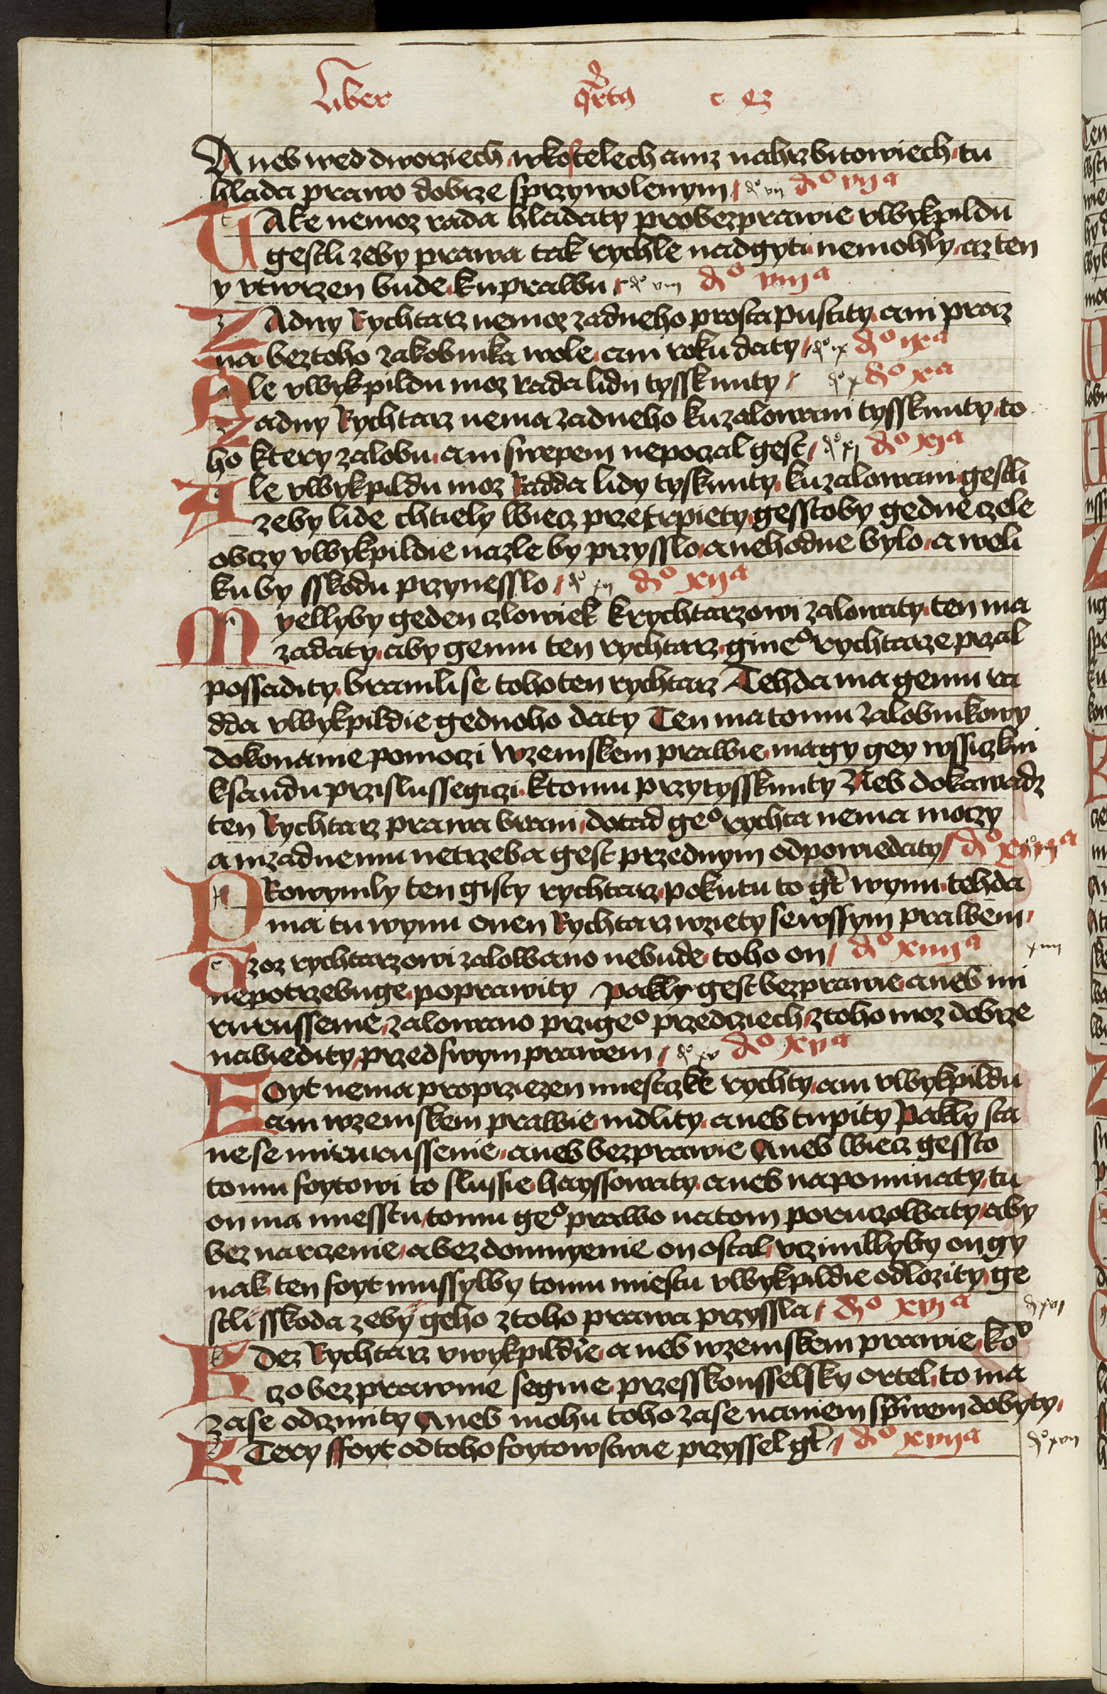 Liber q̾rtꝰ c ez
Aneb wed dworziech wkostelech aniz nahrzbitowiech tu
hlada prawo dobrze sprzywolenym do vii dͦ vijᵃ
Take nemoz rada hladaty pro bezprawie vwykpildu
gestli zeby prawa tak rychle nadgyti nemohly az ten
y vtwrzen bude ku prawu dͦ viii dͦ viijᵃ
Zadny Rychtarz nemoz zadneho prosta pustity ani praz
na bez toho zakobnika wole ani roku daty dͦ ix dͦ ixᵃ
Ale vwykpildu moz rada lidu tyssknuty dͦ x dͦ xᵃ
Zadny Rychtarz nema zadneho ku zalowani tysskunty to
ho ktery zalobu ani swepem nepoczal gest dͦ xi dͦ xiᵃ
Ale vwykpildu moz Radda lidy tyskunty ku zalowani gestli
zeby lide chtiely wiecz przetrpiety gesstoby gedne czele
obczy vwykpildie nazle by przysslo a nehodne bylo a weli
ku by sskodu przynesslo dͦ xii dͦ xijᵃ
Myellyby geden czlowiek krychtarzowi zalowaty ten ma
zadaty aby gemu ten rychtarz gineͦ rychtarze przal
possadity branili se toho ten rychtarz Tehda ma gemu ra
dda vwykpildie gednoho daty Ten ma tomu zalobnikowy
dokonanie pomoczi wzemskem prawie magy gey wssiczkni
ksaudu przislussegiczi ktomu przytysskunty Neb dokawadz
ten Rychtarz prawa brani dotad geͦ rychta nema moczy
aniz zadnemu netrzeba gest przednym odpowiedaty dͦ xiijᵃ
Prowynily ten gisty rychtarz pokutu to gt̾ wynu tehda
ma tu wynu onen Rychtarz wziety sewssym prawem
Czoz rychtarzowi zalowano nebude toho on dͦ xiiijᵃ xiiii
nepotrzebuge poprawity pakly gest bezprawie aneb mi
ru russenie zalowano przi geͦ przedcziech ztoho moz dobrze
nabiedity przed swym prawem dͦ xv dͦ xvᵃ
Foyt nema pro przezen miestczke rychty ani vwykpildu
ani wzemskem prawie mdlity aneb tupity Pakly sta
nese miru russenie aneb bezprawie Aneb wiecz gessto
tomu foytowi to slussie hayssowaty aneb napominaty tu
on ma miesstu tomu geͦ prawo natom poruczowaty aby
bez narczenie a bez domnyenie on ostal vczinillyby on gy
nak ten foyt mussylby tomu miestu vwykpildie odlozity ge
stli sskoda zeby geho ztoho prawa przyssla dͦ xvjᵃ dͦ xvi
Kdez Rychtarz vwykpildie aneb wzemskem prawie koͮ
czo bezprawnie segme przesskonsselsky ortel to ma
zase odczinity Aneb mohu toho zase naniem sp̾wem dobyty
Ktery ffoyt od toho foytowstwie przyssel gt̾ dͦ xvijᵃ dͦ xvii